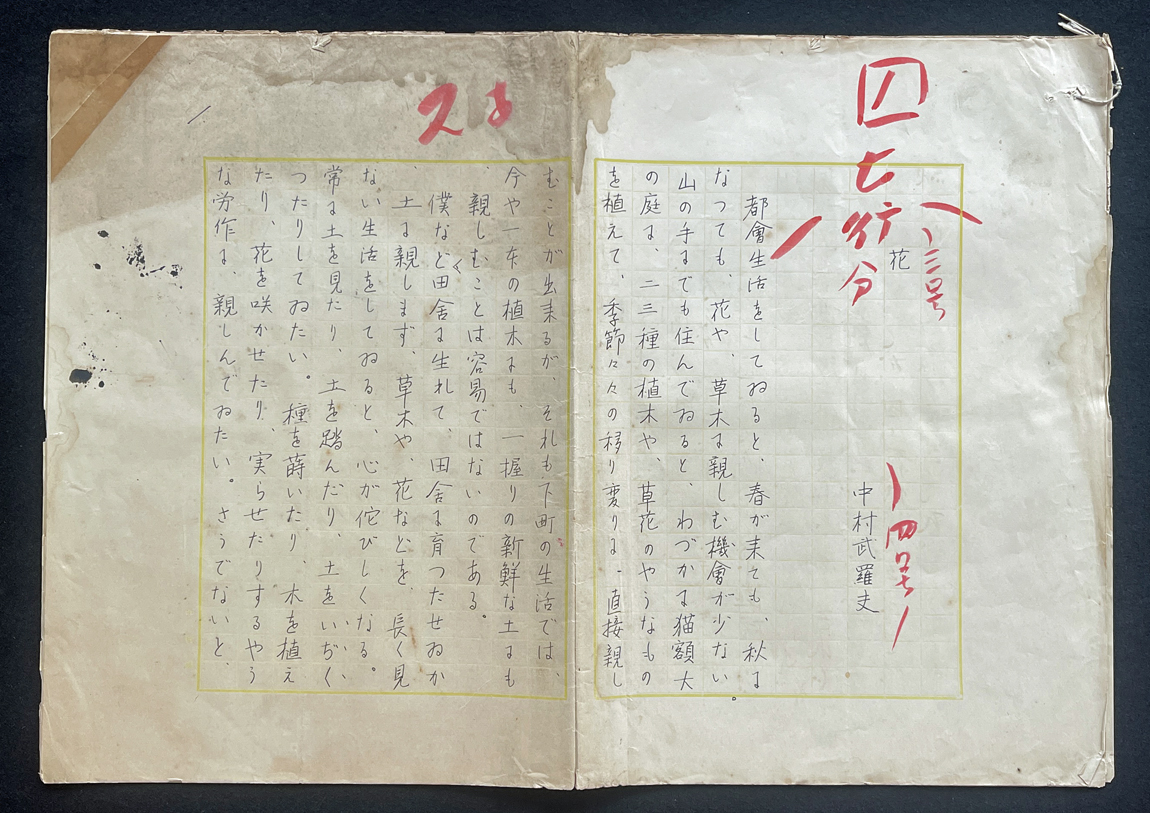 三号
七行分
花
四号
中村武羅夫
都會生活をしてゐると、春が来ても、秋に
なつても、花や、草木に親しむ機會が少ない
山の手までも住んでゐると、わづかに猫額大
の庭に、二三種の植木や、草花のやうなもの
を植えて、季節々々の移り変りに、直接親し
むことが出来るが、それも下町の生活では、
今や一本の植木にも、一握りの新鮮な土にも
、親しむことは容易ではないのである。
僕など田舎に生れて、田舎に育つたせゐか
、土に親しまず、草木や、花などを、長く見
ない生活をしてゐると、心が佗びしくなる。
常に土を見たり、土を踏んだり、土をいぢく
つたりしてゐたい。種を蒔いたり、木を植え
たり、花を咲かせたり、実らせたりするやう
な労作に親しんでゐたい。さうでないと、